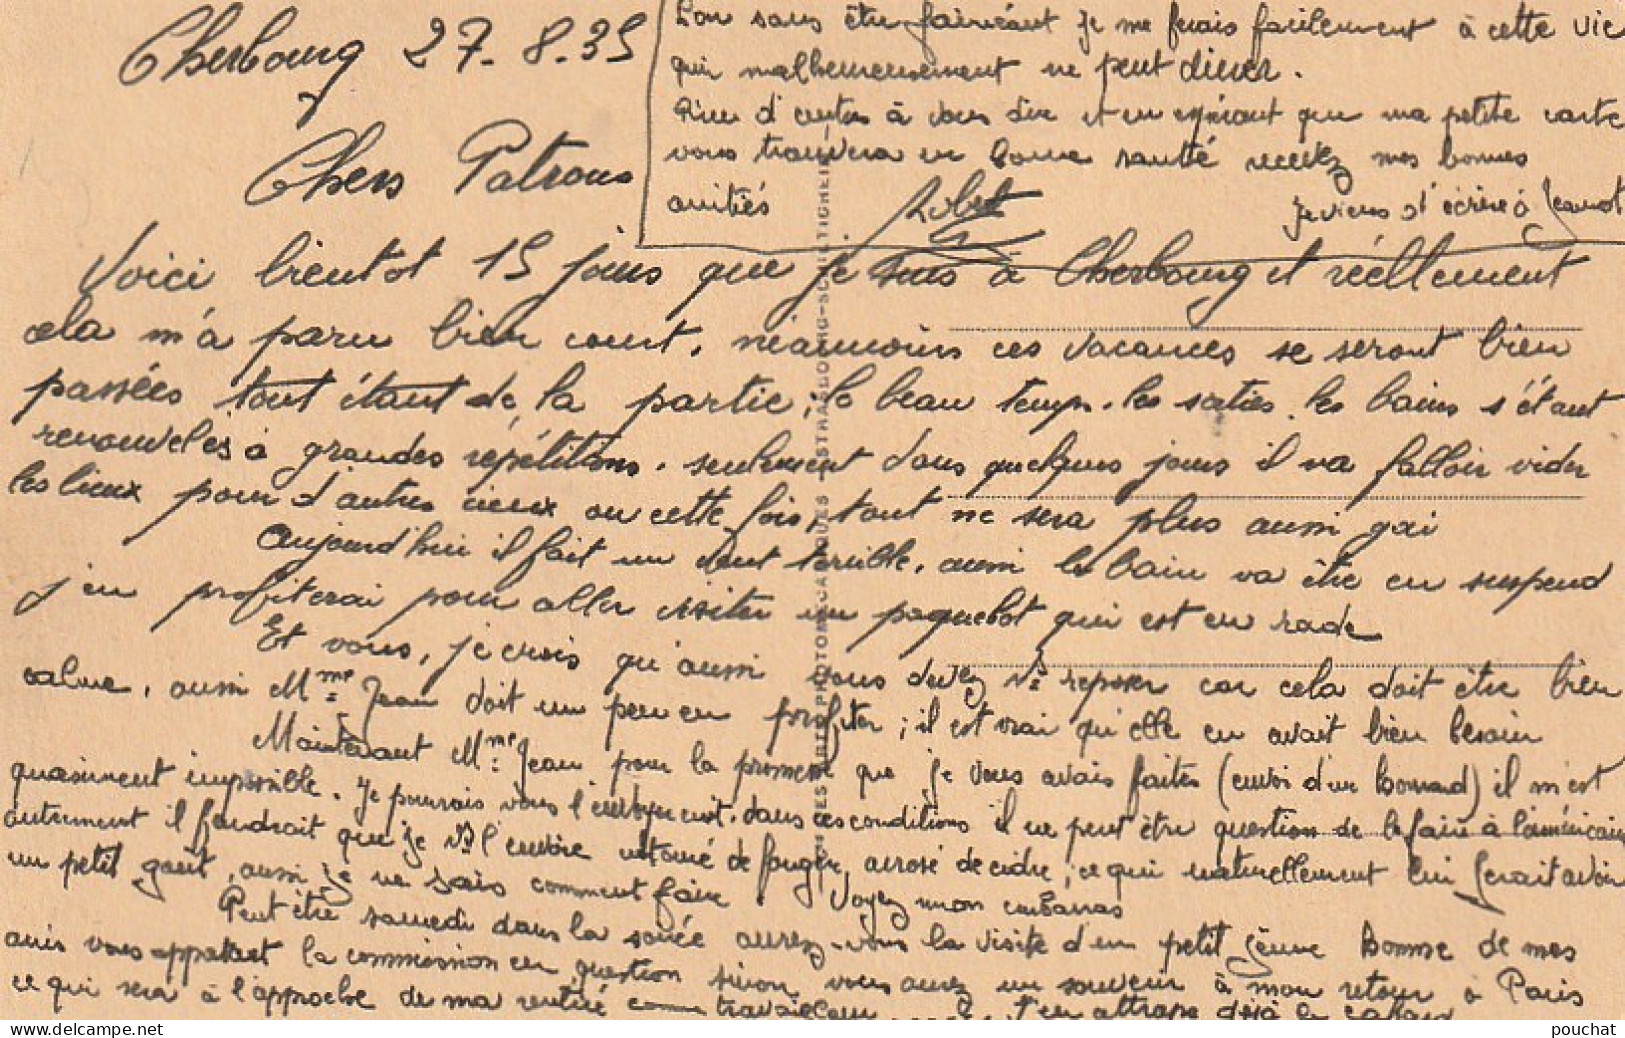 Cherbourg 27-8.35
Chers Patrons
Voici bientot 15 jours que je suis à Cherbourg et réellement
cela m'a paru bien court, néanmoins ces vacances se seront bien
passées tout étant de la partie; le beau temps. les sorties. les bains s'étant
renouvelés à grandes répétitions. seulement dans quelques jours il va falloir vider
les lieux pour d'autres cieux ou cette fois, tout ne sera plus aussi gai
Aujourd'hui il fait un vent terrible, aussi le bain va être en suspend
j'en profiterai pour aller visiter un paquebot qui est en rade
Et vous, je crois qu'aussi vous devez vs reposer car cela doit être bien
calme, aussi Mme Jean doit un peu en profiter; il est vrai qu'elle en avait bien besoin
Maintenant Mme Jean pour la promesse que je vous avais faites (envoi d'un homard) il m'est
quasiment impossible. Je pourrais vous l'envoyer cuit. dans ces conditions il ne peut être question de le faire à l'américaine
autrement il faudrait que je vs l'envoie entouré de fougère, arrosé de cidre, ce qui naturellement lui ferait avoir
un petit gout, aussi je ne sais comment faire. Voyez mon embarras
Peut être samedi dans la soirée aurez-vous la visite d'un petit jeune homme de mes
amis vous apportant la commission en question sinon vous aurez un souvenir à mon retour à Paris
ce qui sera à l'approche de ma rentrée comme travailleur J'en attrape déjà le cafard
Bon sans être fainéant je me ferais facilement à cette vie
qui malheureusement ne peut durer.
Rien d'autre à vous dire et en espérant que ma petite carte
vous trouvera en bonne santé recevez mes bonnes
amitiés
Robert
Je viens d'écrire à Jeannot
pouchat